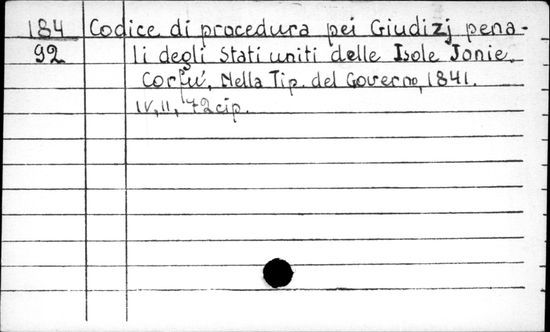 184 Codice di procedura pei Giudizj pena-
92 li degli Stati uniti delle Isole Jonie.
Corfu', Nella Tip. del Governo, 1841.
IV, II, 72 cip.